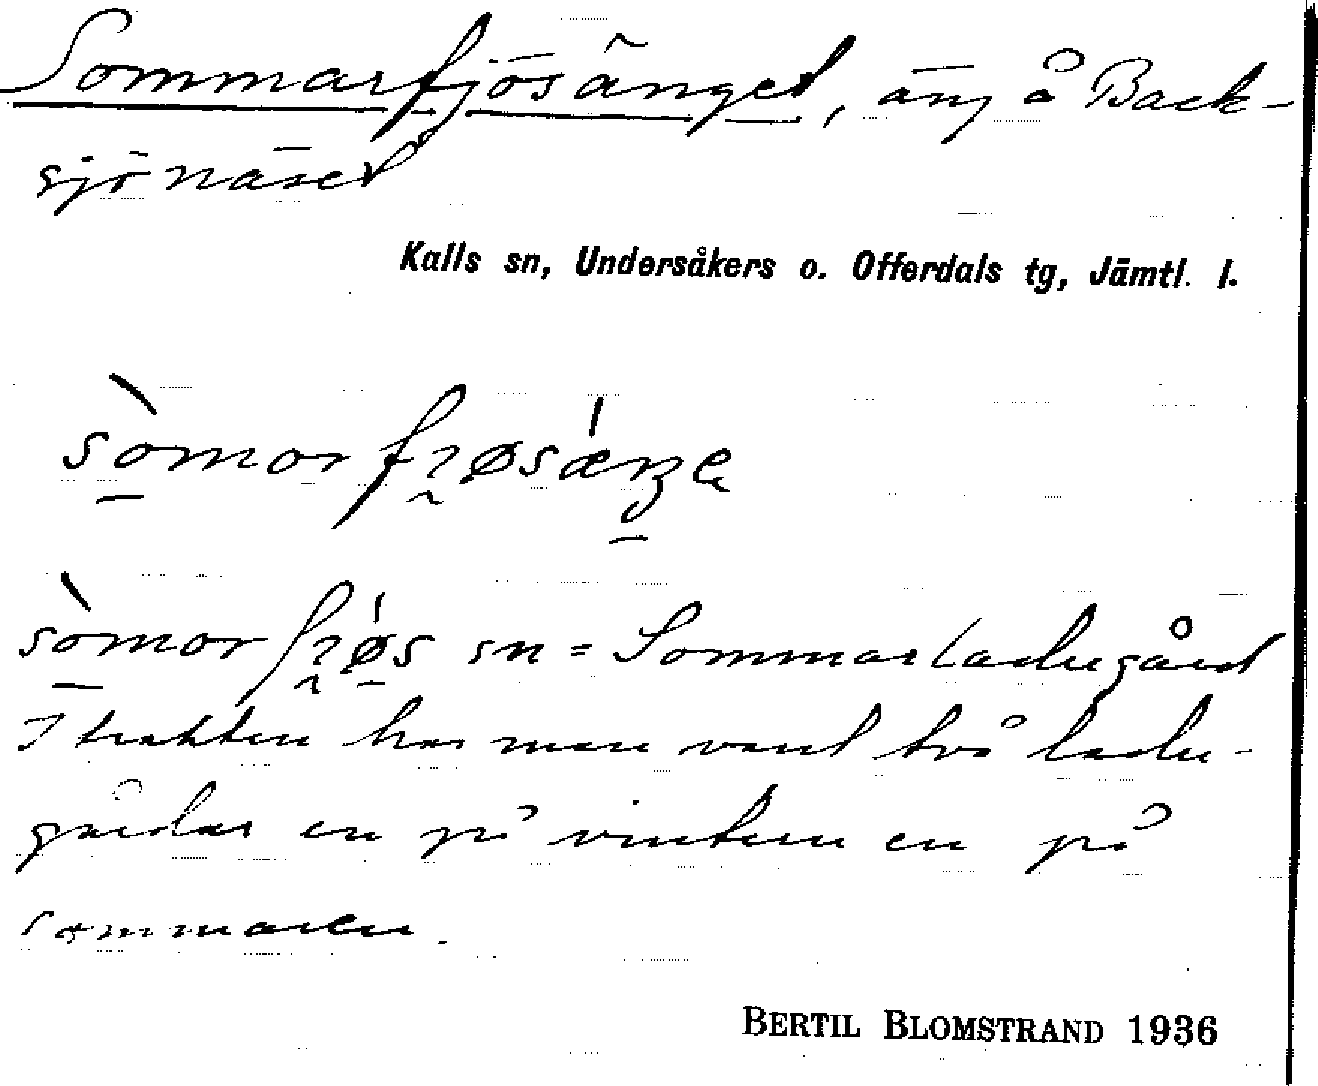 Sommarfjösänget, äng å Back-
sjönäset
Kalls sn, Undersåkers o. Offerdals tg, Jämtl. l.
sò̠morfɂ̯øsǽŋe
sò̠morfɂ̯ǿ̠s sn = Sommarladugård
I trakten har man vant två ladu-
gårdar en på vintern en på
sommaren.
BERTIL BLOMSTRAND 1936